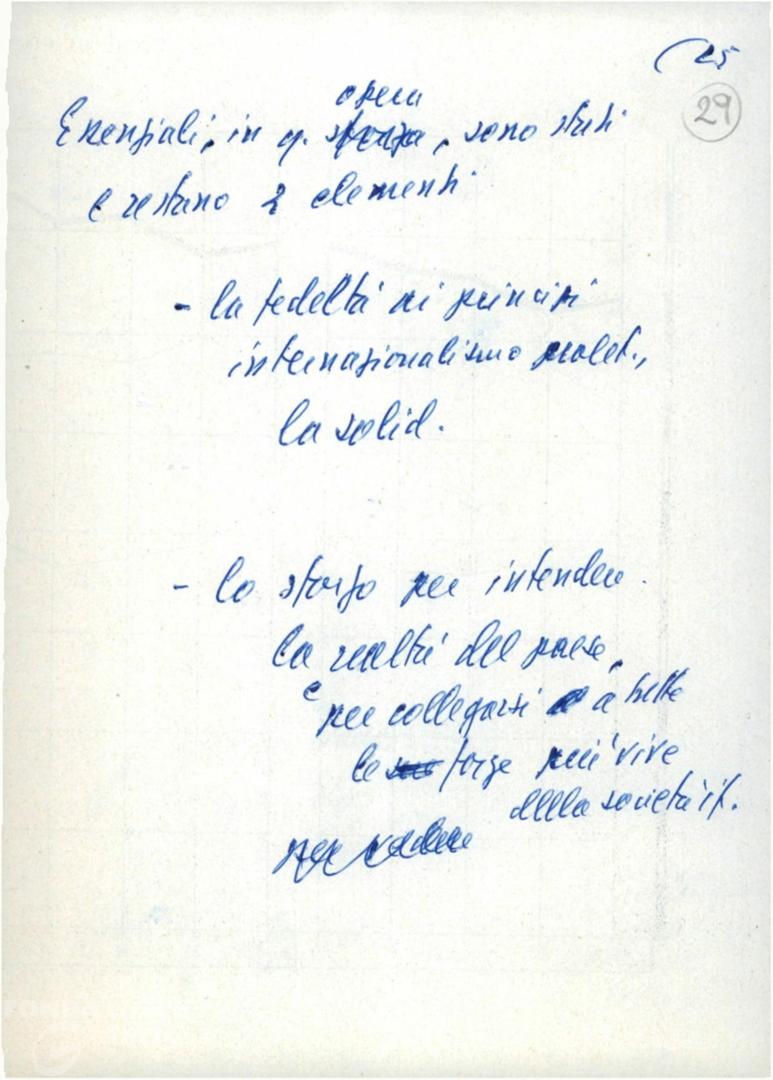 25
29
opera
Essenziali, in q. sforzo, sono stati
e restano 2 elementi
- la fedeltà ai principi
internazionalismo prolet.,
la solid.
- lo sforzo per intendere
la realtà del paese,
e per collegarsi a tutte
le forze più vive
della società it.
per vedere